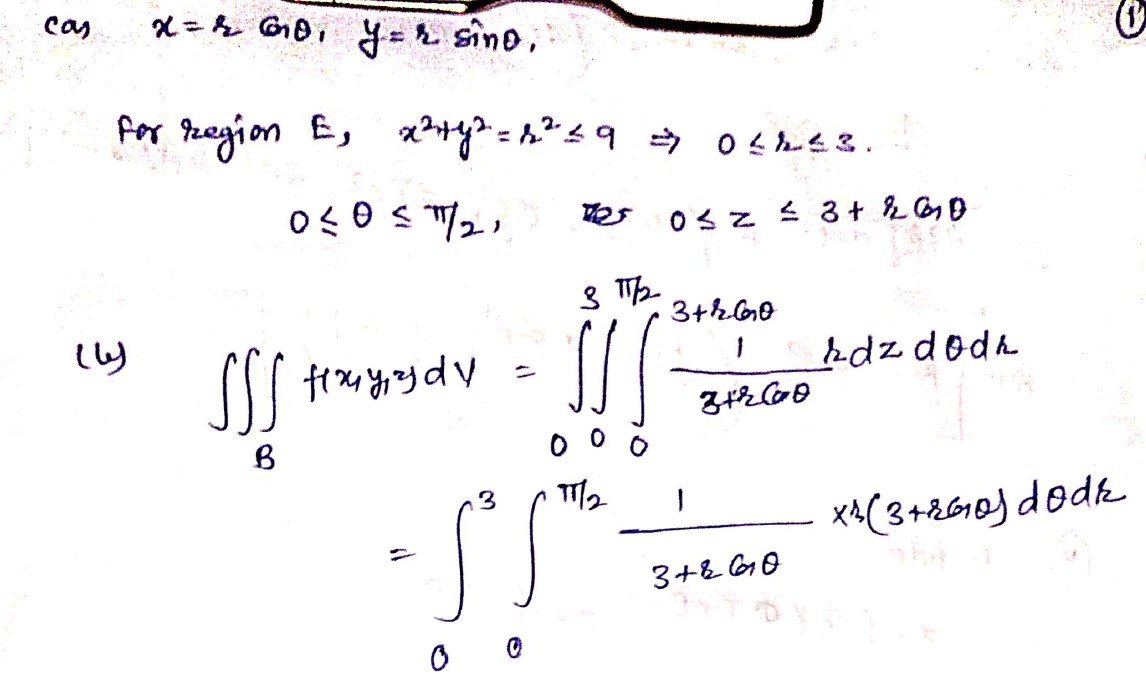 (a) x = r cosθ, y = r sinθ,
①
For region E, x²+y² = r² ≤ 9 ⇒ 0 ≤ r ≤ 3.
0 ≤ θ ≤ π/2, 0 ≤ z ≤ 3 + r cosθ
(b) ∭_B f(x,y,z) dV = ∫₀³ ∫₀^{π/2} ∫₀^{3+r cosθ} 1/(3+r cosθ) r dz dθ dr
= ∫₀³ ∫₀^{π/2} 1/(3+r cosθ) × r(3+r cosθ) dθ dr